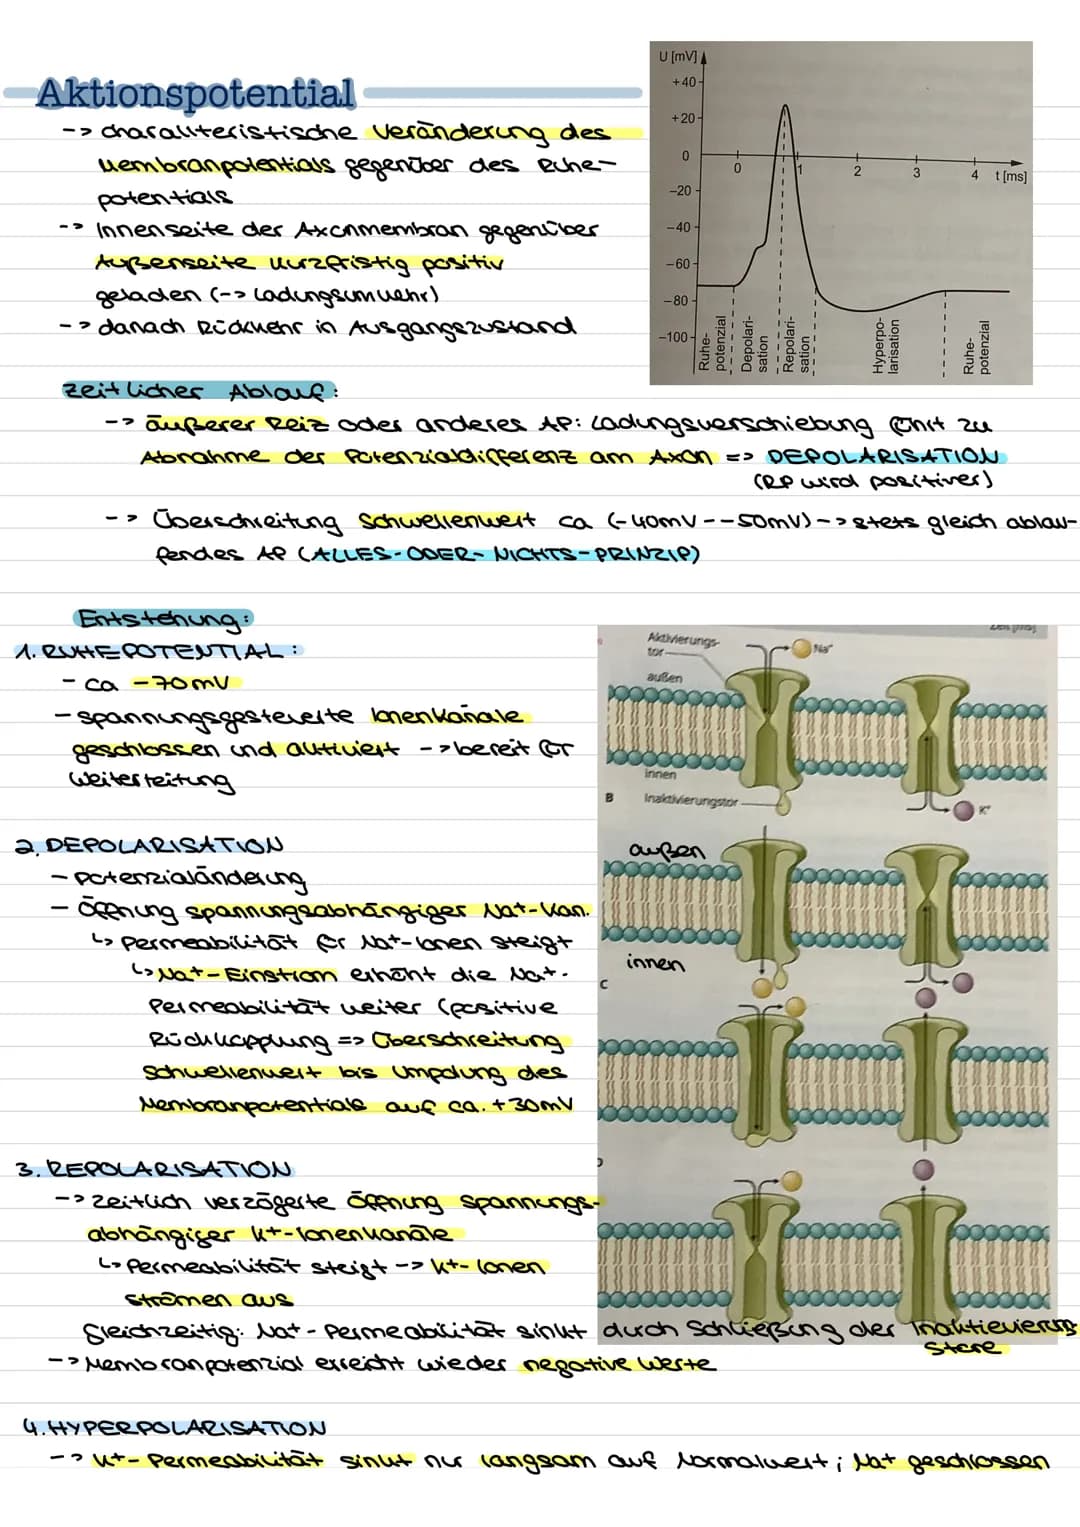 Aktionspotential
-> charakteristische Veränderung des
Membranpotentials gegenüber des Ruhe-
potentials
-> Innenseite der Axonmembran gegenüber
Außenseite kurzfristig positiv
geladen (-> Ladungsumkehr)
-> danach Rückkehr in Ausgangszustand
U [mV]
+40
+20
0
-20
-40
-60
-80
-100
0 1 2 3 4 t [ms]
Ruhe-
potenzial
Depolari-
sation
Repolari-
sation
Hyperpo-
larisation
Ruhe-
potenzial
Zeitlicher Ablauf:
-> äußerer Reiz oder anderes AP: Ladungsverschiebung führt zu
Abnahme der Potenzialdifferenz am Axon => DEPOLARISATION
(RP wird positiver)
-> Überschreitung Schwellenwert ca (-40mV--50mV)-> stets gleich ablau-
fendes AP (ALLES-ODER-NICHTS-PRINZIP)
Entstehung:
1. RUHEPOTENTIAL:
- ca -70mV
- spannungsgesteuerte Ionenkanäle
geschlossen und aktiviert -> bereit für
Weiterleitung
2. DEPOLARISATION
- Potenzialänderung
- Öffnung spannungsabhängiger Na+-Kan.
↳ Permeabilität für Na+-Ionen steigt
↳ Na+-Einstrom erhöht die Na+-
Permeabilität weiter (positive
Rückkopplung => Überschreitung
Schwellenwert bis Umpolung des
Membranpotentials auf ca. +30mV
Zeit [ms]
Aktivierungs-
tor
Na+
außen
innen
B
Inaktivierungstor
K+
außen
innen
C
3. REPOLARISATION
-> zeitlich verzögerte Öffnung spannungs-
abhängiger K+-Ionenkanäle
↳ Permeabilität steigt -> K+-Ionen
strömen aus
Gleichzeitig: Na+-Permeabilität sinkt durch Schließung der Inaktivierungs-
store
-> Membranpotenzial erreicht wieder negative Werte
4. HYPERPOLARISATION
-> K+-Permeabilität sinkt nur langsam auf Normalwert; Na+ geschlossen